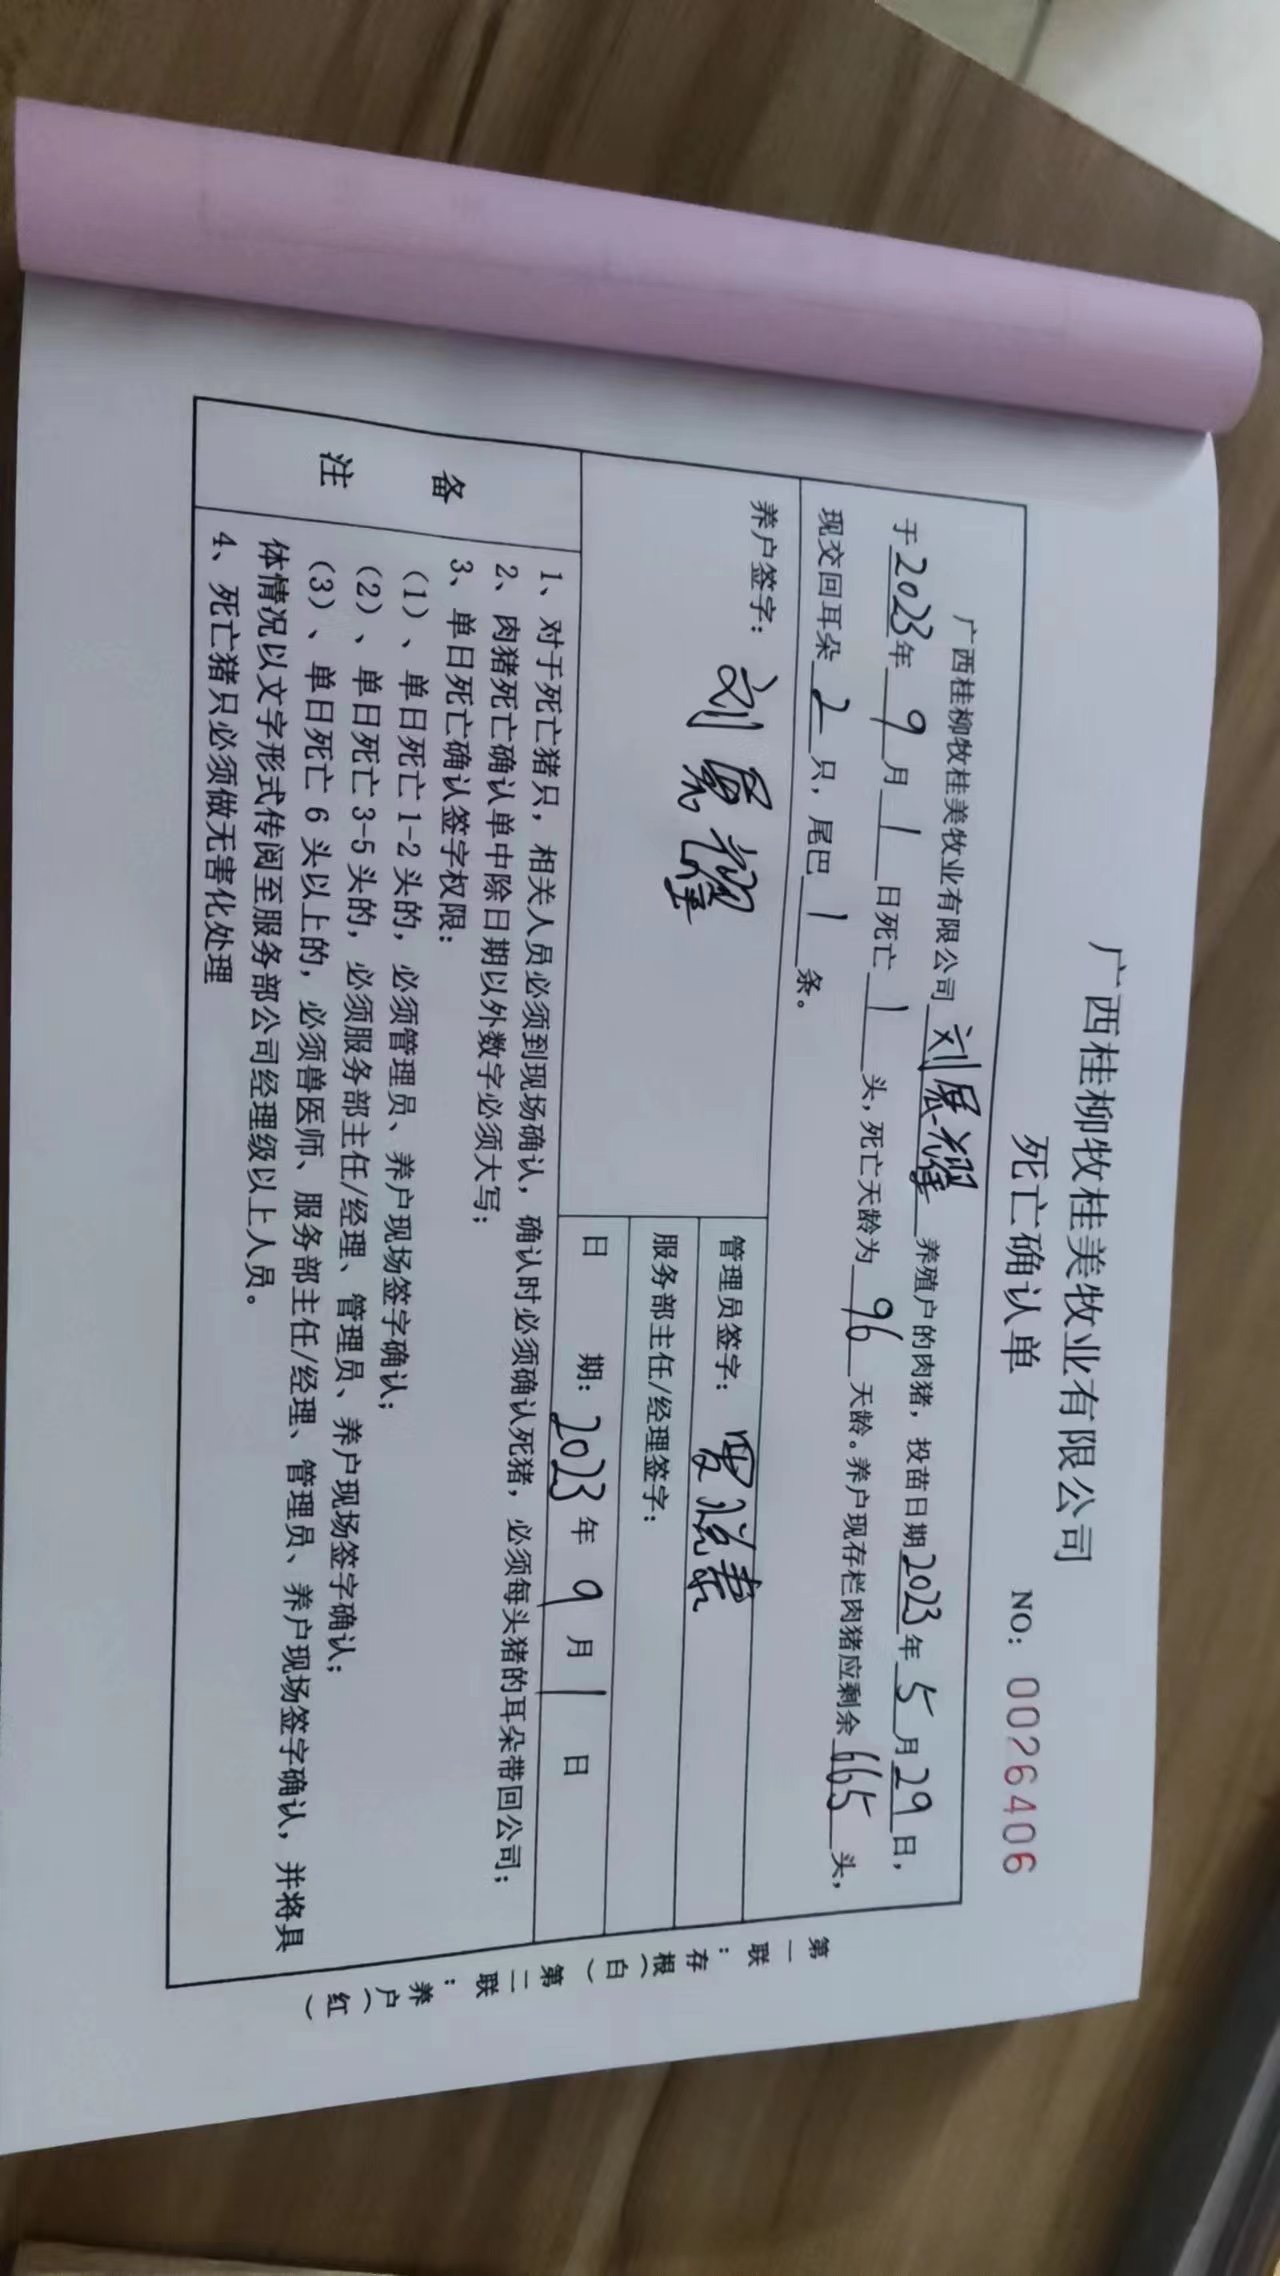 广西桂柳牧桂美牧业有限公司
死亡确认单
NO: 0026406
广西桂柳牧桂美牧业有限公司刘展耀养殖户的肉猪，投苗日期2023年5月29日，
于2023年9月1日死亡1头，死亡天龄为96天龄。养户现存栏肉猪应剩余665头，
现交回耳朵2只，尾巴1条。
养户签字：刘展耀
管理员签字：
服务部主任/经理签字：
日 期：2023年9月1日
备注
1、对于死亡猪只，相关人员必须到现场确认，确认时必须确认死猪，必须每头猪的耳朵带回公司；
2、肉猪死亡确认单中除日期以外数字必须大写；
3、单日死亡确认签字权限：
（1）、单日死亡1-2头的，必须管理员、养户现场签字确认；
（2）、单日死亡3-5头的，必须服务部主任/经理、管理员、养户现场签字确认；
（3）、单日死亡6头以上的，必须兽医师、服务部主任/经理、管理员、养户现场签字确认，并将具
体情况以文字形式传阅至服务部公司经理级以上人员。
4、死亡猪只必须做无害化处理
第一联：存根（白）第二联：养户（红）